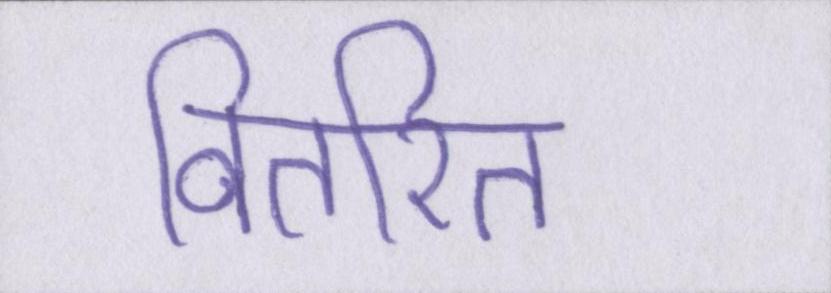 वितरित